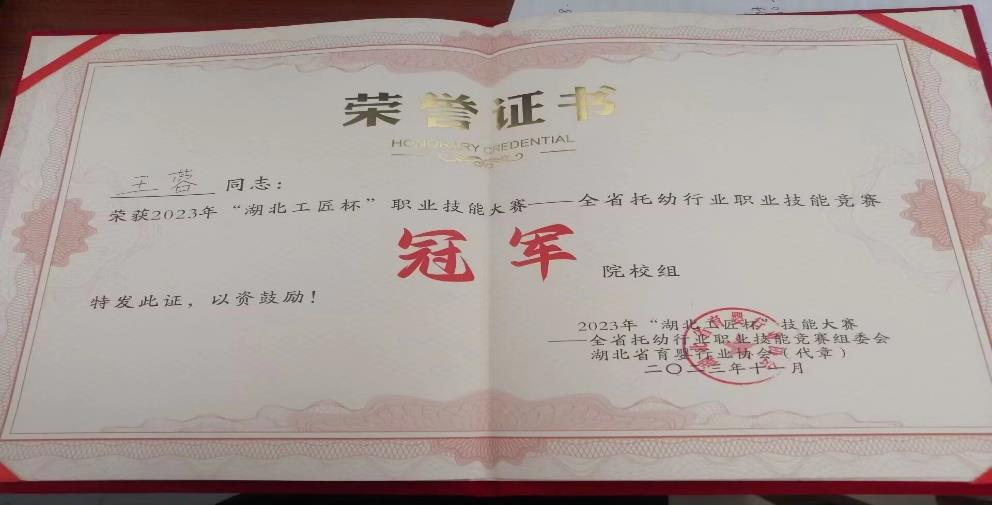 荣誉证书
HONORARY CREDENTIAL
王蓉 同志：
荣获2023年“湖北工匠杯”职业技能大赛——全省托幼行业职业技能竞赛
冠军 院校组
特发此证，以资鼓励！
2023年“湖北工匠杯”技能大赛
——全省托幼行业职业技能竞赛组委会
湖北省育婴行业协会（代章）
二〇二三年十一月